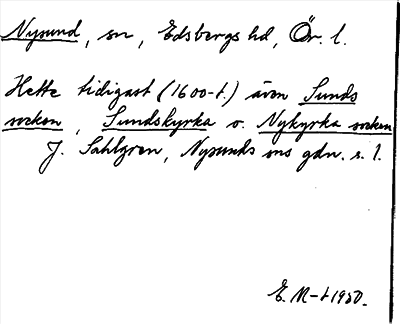 Nysund, sn, Edsbergs hd, Ör. l.
Hette tidigast (1600-t.) även Sunds
socken, Sundskyrka o. Nykyrka socken
J. Sahlgren, Nysunds sns gdn. s. 1.
E. M-t 1950.